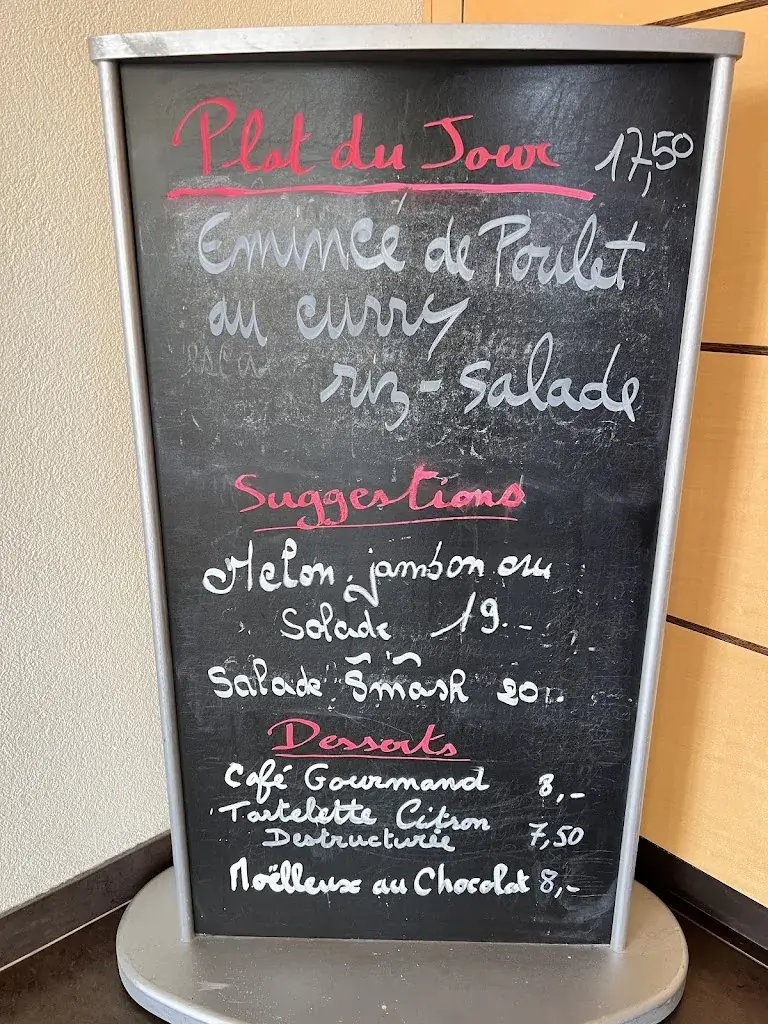 Plat du Jour 17,50
Emincé de Poulet
au curry
riz - salade
Suggestions
Melon, jambon cru
Salade 19.-
Salade Smash 20.-
Desserts
Café Gourmand 8,-
Tartelette Citron
Destructurée 7,50
Moëlleux au Chocolat 8,-